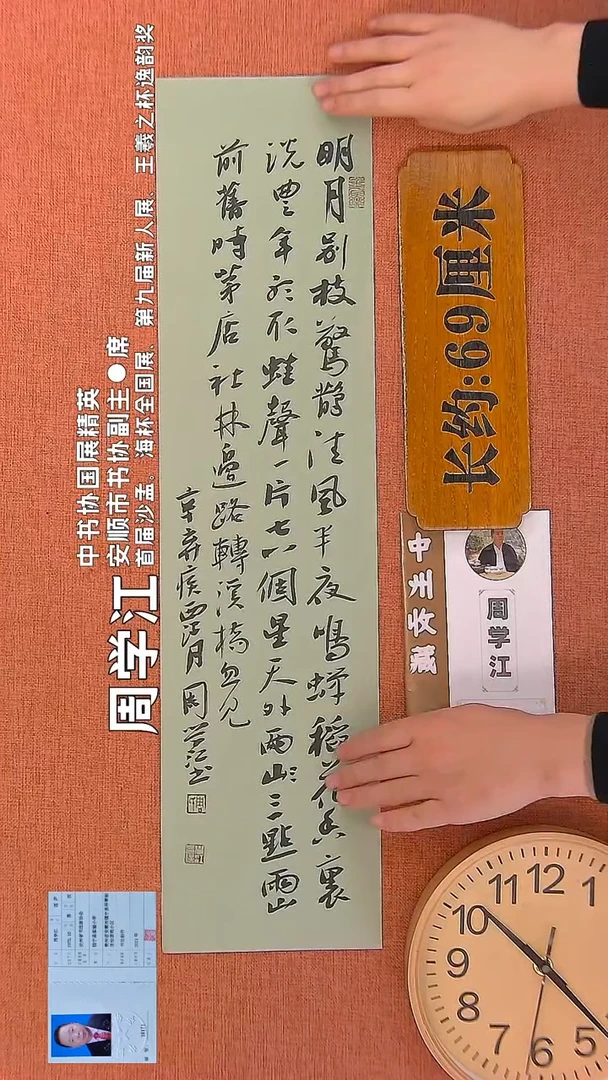 中书协国展精英
安顺市书协副主●席
首届沙孟。海杯全国展、第九届新人展、王羲之杯逸韵奖
周学江
明月别枝驚鵲清風半夜鳴蟬稻花香裏
说豐年聽取蛙聲一片七八個星天外兩山三點雨山
前舊時茅店社林邊路轉溪橋忽見
辛弃疾西江月 周学江书
长约:69厘米
周学江
11 12 1
10
9
8 7 6 5